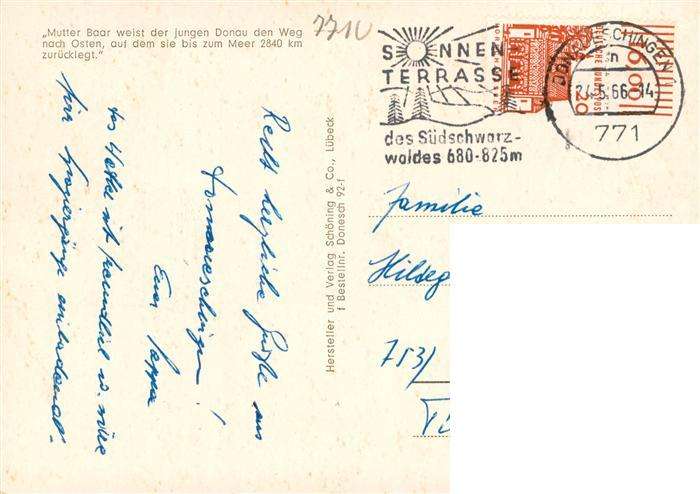 „Mutter Baar weist der jungen Donau den Weg
nach Osten, auf dem sie bis zum Meer 2840 km
zurücklegt."
7710
SONNEN
TERRASSE
des Südschwarz-
waldes 680-825m
DONAUESCHINGEN
24.5.66-14
771
DEUTSCHE BUNDESPOST
20
Hersteller und Verlag Schöning & Co., Lübeck
Bestellnr. Donesch 92-f
Recht herzliche Grüße aus
Donaueschingen!
Euer Pappa
das Wetter ist freundlich u. wäre
für Spaziergänge einladend.
Familie
Hildeg
753/